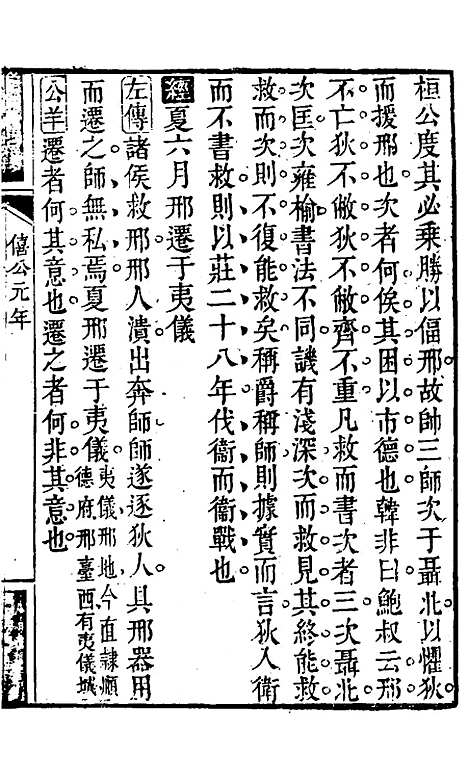 桓公度其必乘勝以偪邢故帥三師次于聶北以懼狄
而援邢也次者何俟其困以市德也韓非曰鮑叔云邢
不亡狄不敝狄不敝齊不重凡救而書次者三次聶北
次匡次雍榆書法不同譏有淺深次而救見其終能救
救而次則不復能救矣稱爵稱師則據實而言狄入衛
而不書救則以莊二十八年伐衞而衞戰也
經夏六月邢遷于夷儀
左傳諸侯救邢邢人潰出奔師師遂逐狄人具邢器用
而遷之師無私焉夏邢遷于夷儀夷儀邢地今直隸順
德府邢臺西有夷儀城
公羊遷者何其意也遷之者何非其意也
僖公元年